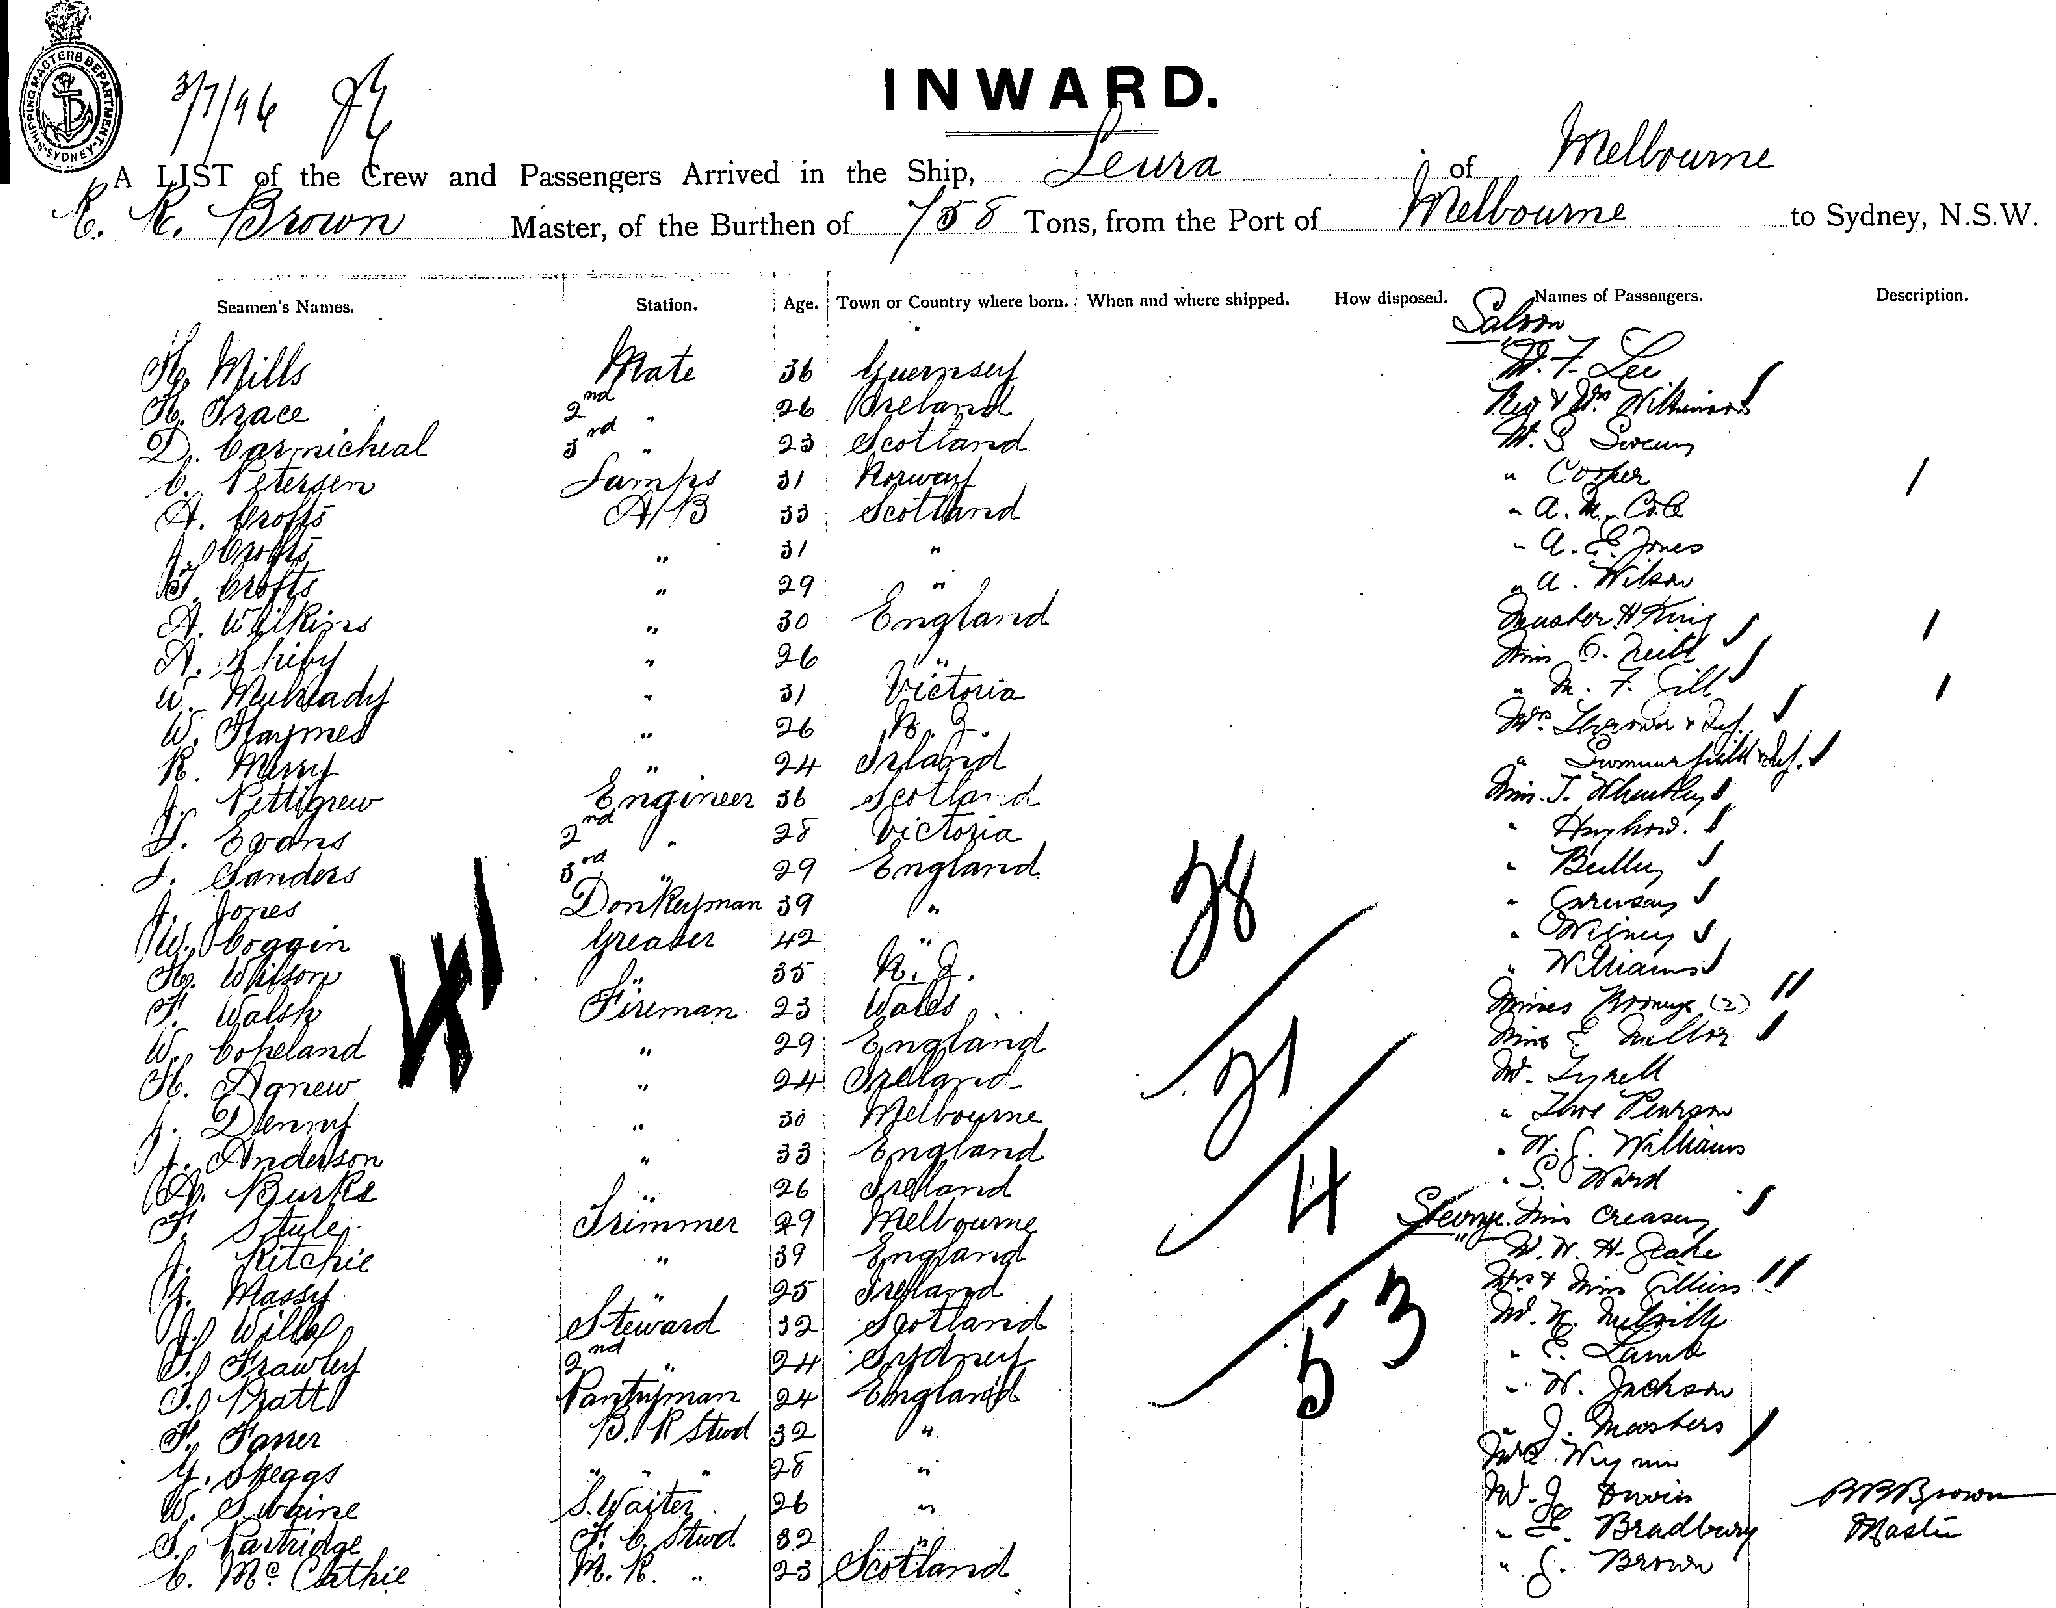 SHIPPING MASTERS DEPARTMENT SYDNEY
3/7/96
INWARD.
A LIST of the Crew and Passengers Arrived in the Ship, Leura of Melbourne
R. R. Brown Master, of the Burthen of 758 Tons, from the Port of Melbourne to Sydney, N.S.W.
Seamen's Names. Station. Age. Town or Country where born. When and where shipped. How disposed. Names of Passengers. Description.
Saloon
H. Mills Mate 36 Guernsey W. F. Lee
H. Trace 2nd " 26 Ireland Wilkinson
D. Carmicheal 3rd " 23 Scotland
C. Petersen Lamps 31 Norway "
A. Crofts A/B 33 Scotland " A. M. Cole
J. Crofts " 31 " " A. E. Jones
T. Crofts " 29 " " A. Wilson
A. Wilkins " 30 England Master H King
A. " 26 " Miss O. Neill
W. " 31 Victoria " M. F. Gill
W. Haymes " 26 N. Z. Mrs
R. Merry " 24 Irland "
J. Pettigrew Engineer 36 Scotland Miss. T.
T. Evans 2nd " 28 Victoria "
J. Sanders 3rd " 29 England "
J. Jones Donkeyman 39 " "
W. Coggin Greaser 42 " "
H. Wilson " 35 N. Z. " Williams
F. Walsh Fireman 23 Wales Misses (2)
W. Copeland " 29 England Miss E.
H. Agnew " 24 Ireland Mr. Tyrell
J. Denny " 30 Melbourne " Thos Pearson
J. Anderson " 33 England " W. J. Williams
A. Burke " 26 Ireland " S. Ward
F. Trimmer 29 Melbourne Steerage. Miss Creasey
J. Ritchie " 39 England
Massy " 25 Ireland Mrs & Miss
J. Steward 32 Scotland Mr. Melville
T. Frawley 2nd " 24 Sydney " E. Lamb
T. Pratt Pantryman 24 England " W. Jackson
F. B. R Stwd 32 " " J. Masters
Y. Skeggs " " " 28 "
W. Swaine S. Waiter 26 " Mr. J. Irwin
S. Partridge F. C. Stwd 32 " " Bradbury
C. McCathie M. R. " 23 Scotland " J. Brown
41
28
21
4
53
R R Brown
Master